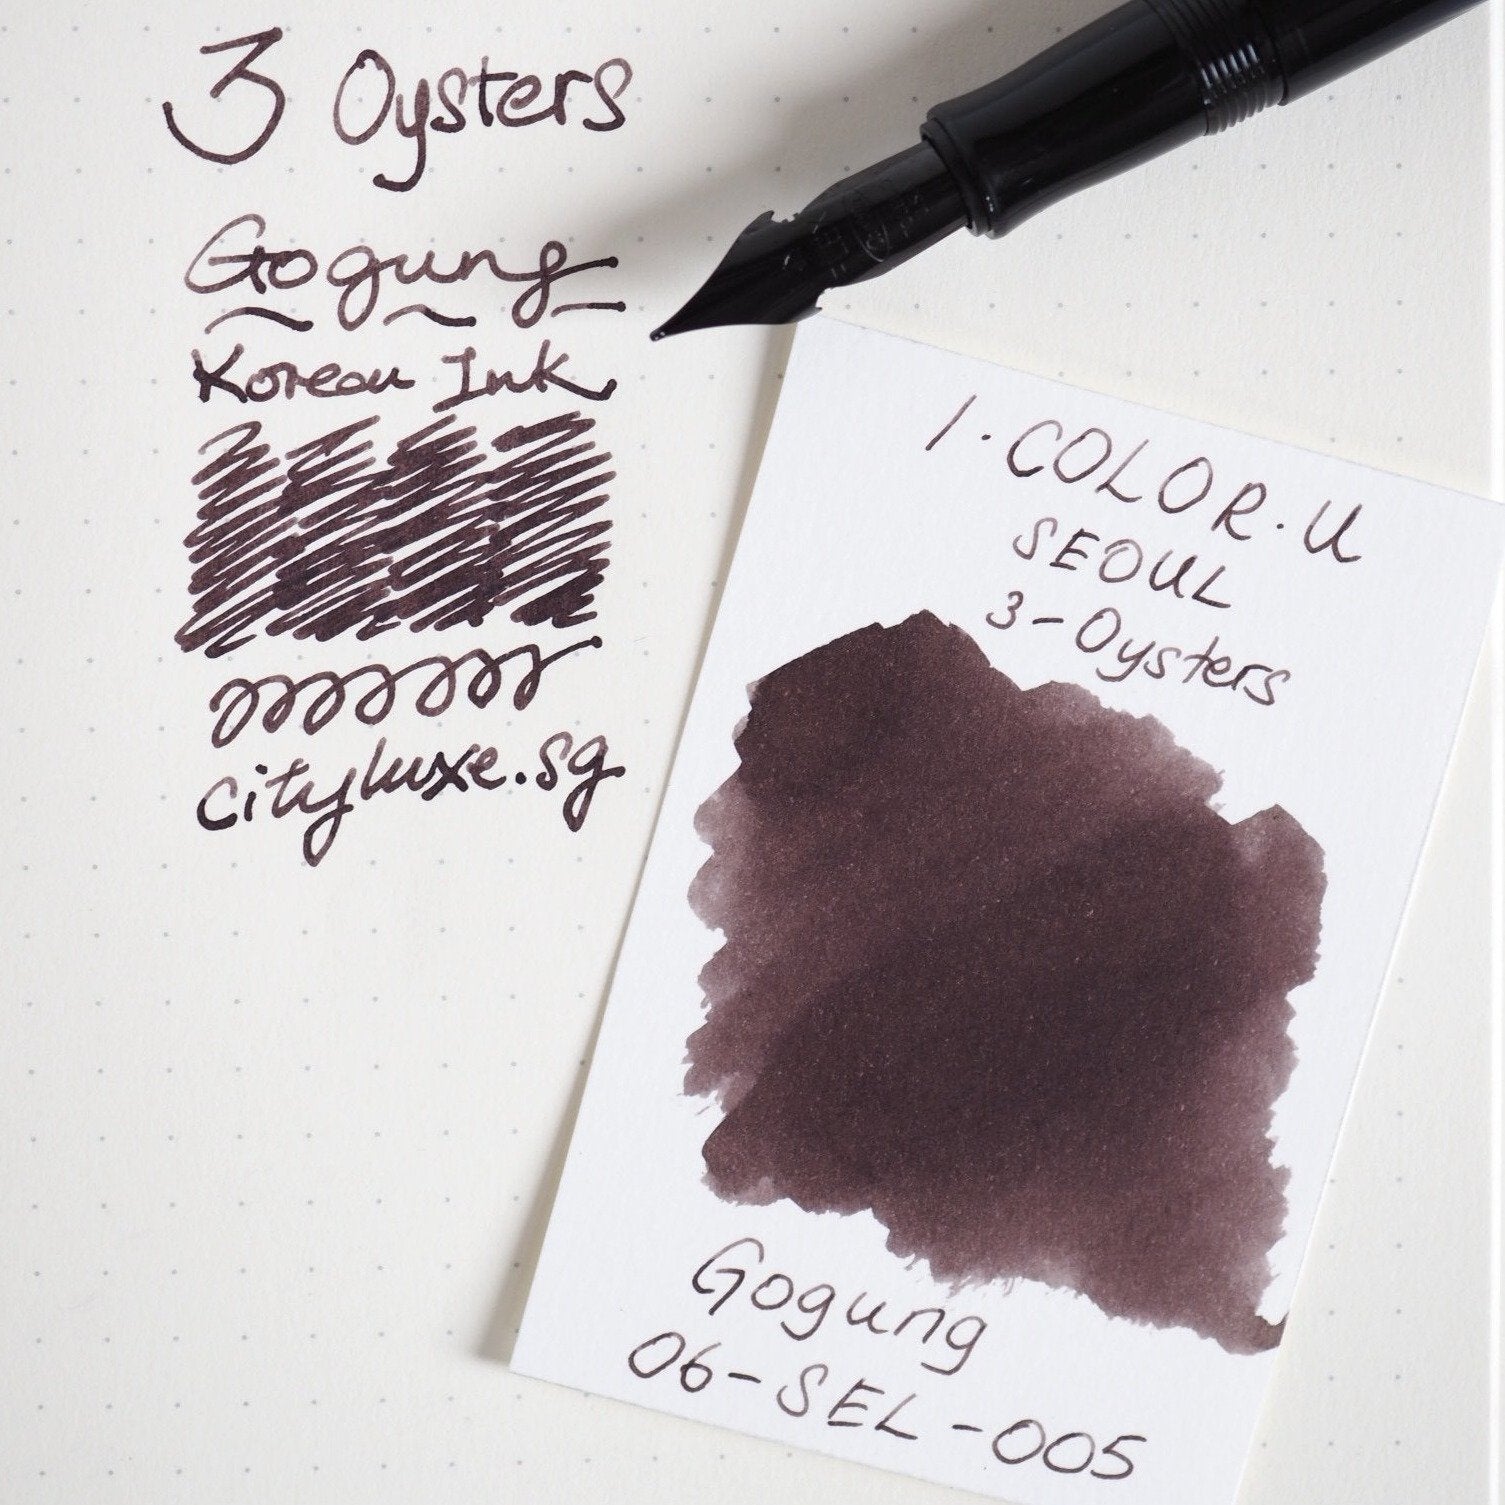 3 Oysters
Gogung
Korean Ink
cityluxe.sg
I·COLOR·U
SEOUL
3-Oysters
Gogung
06-SEL-005